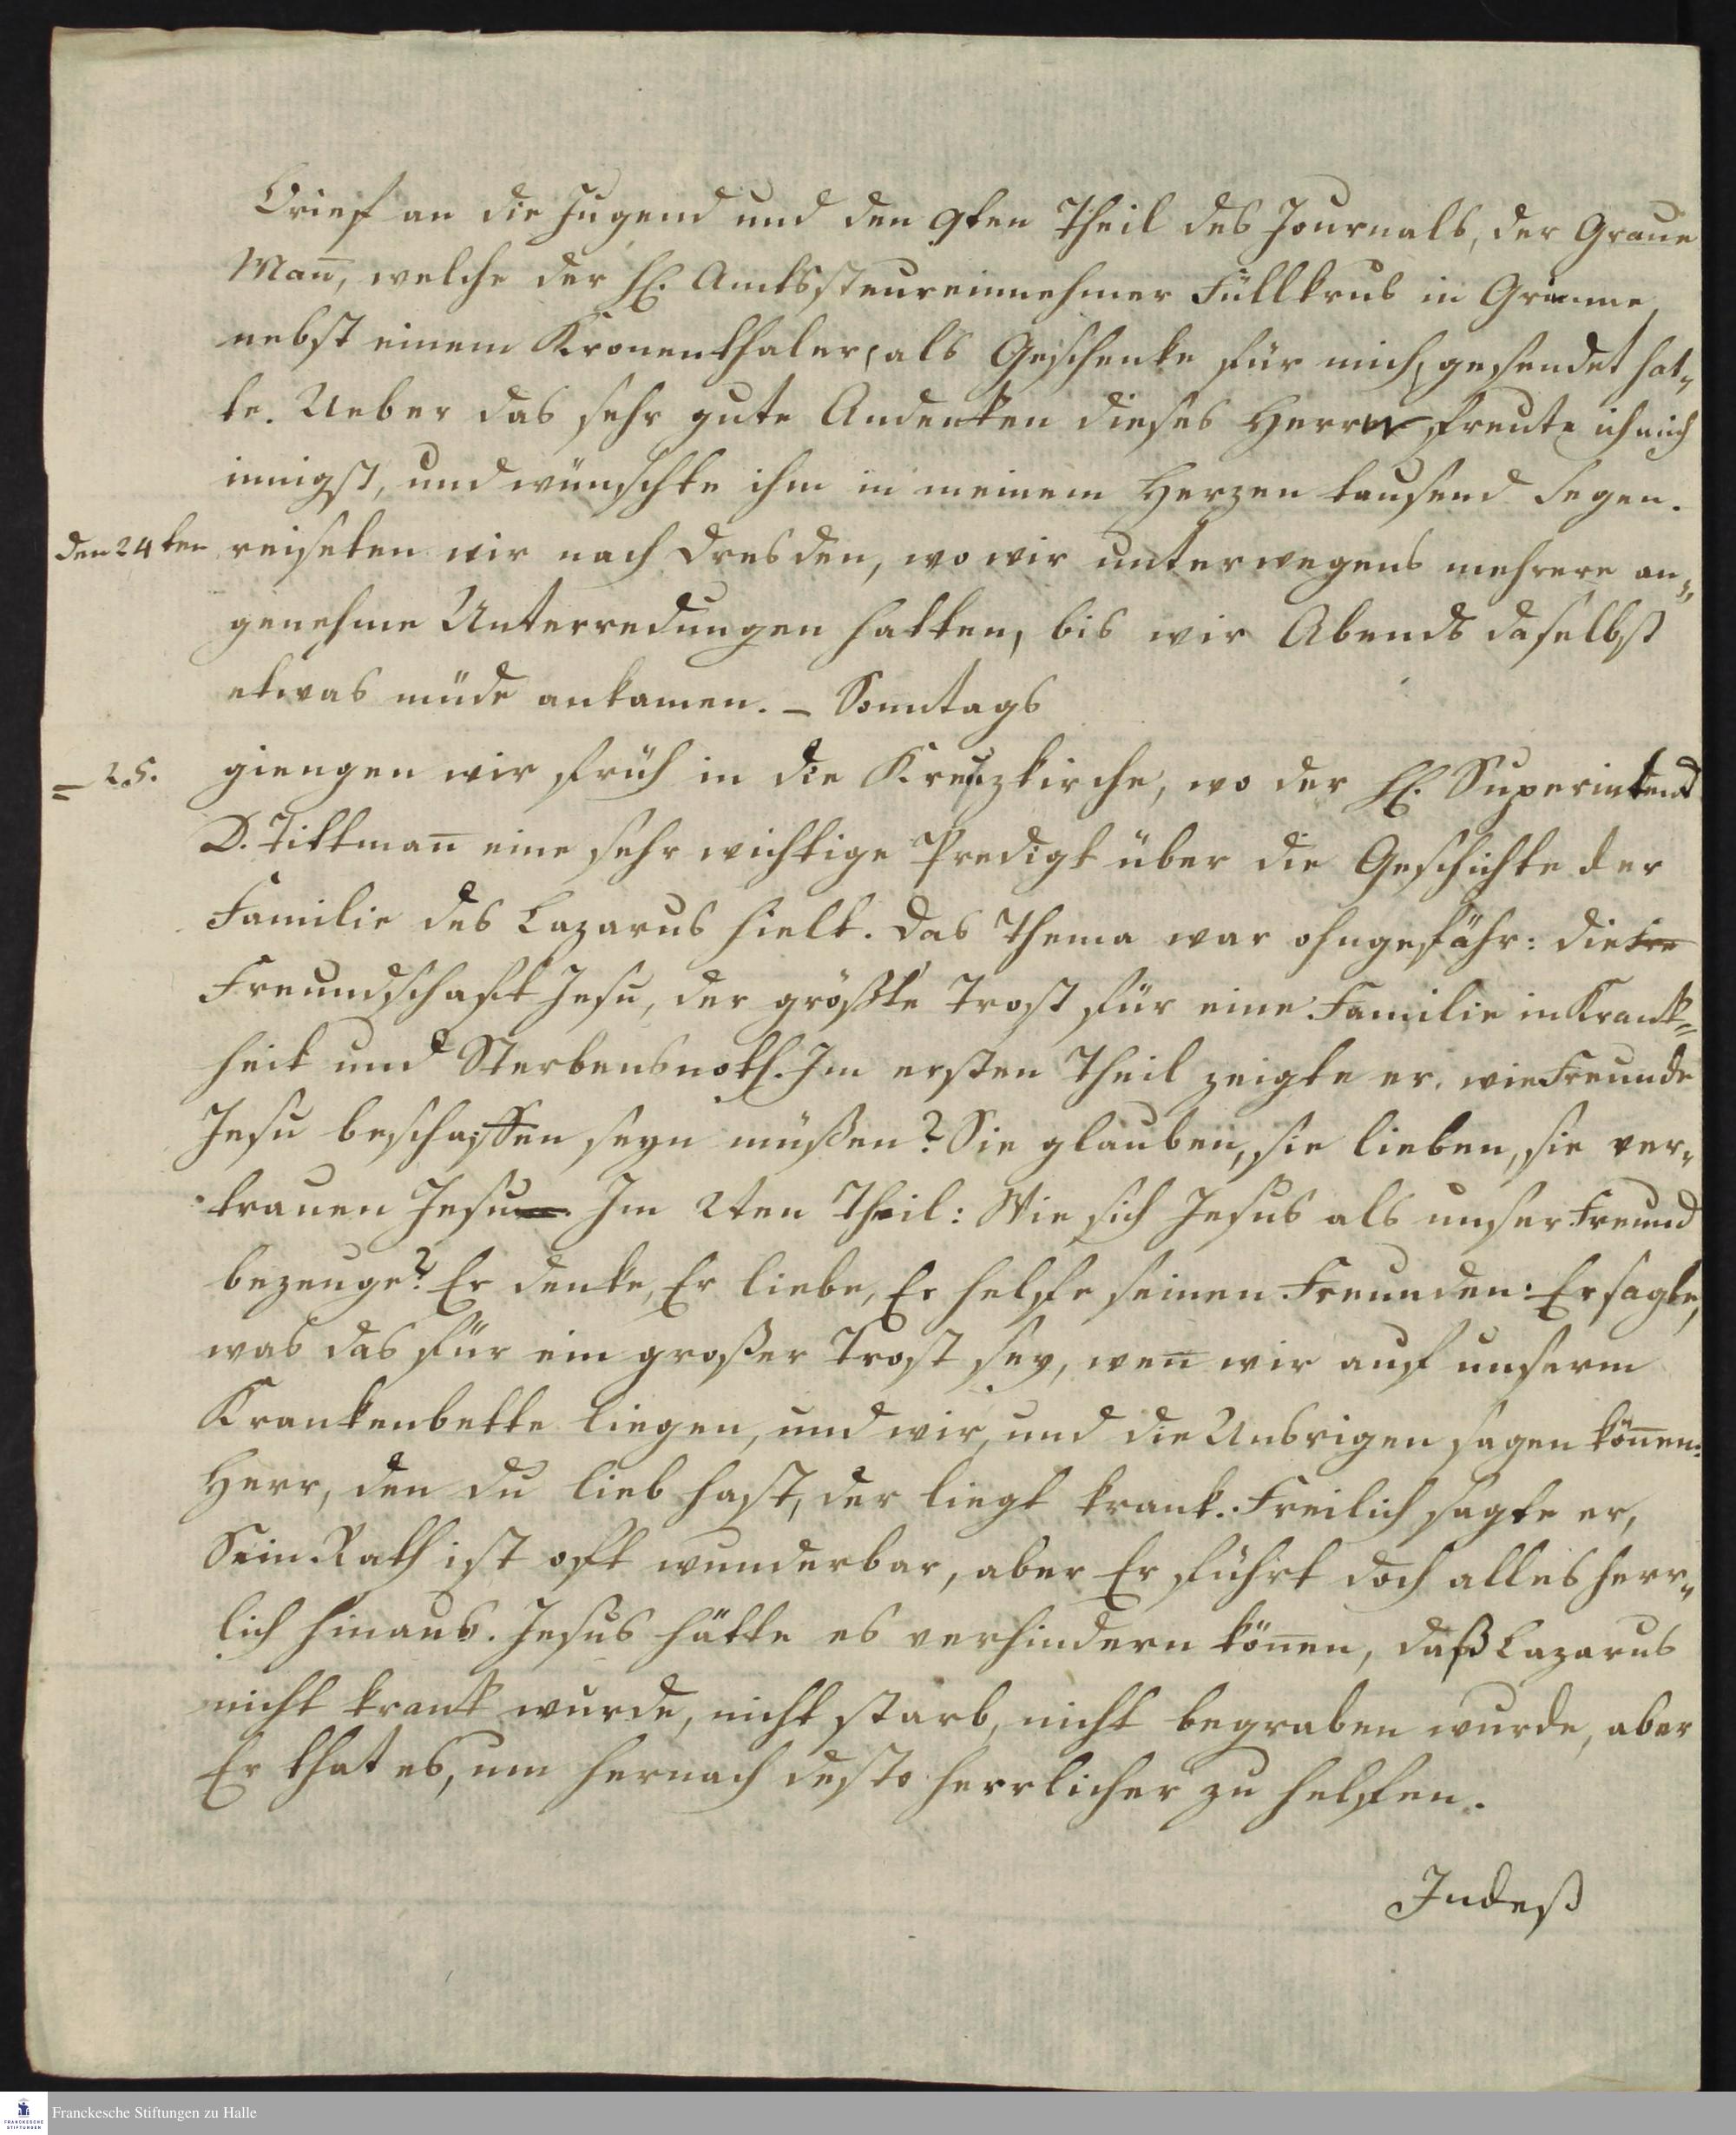 Brief an die Jugend und den 9ten Theil des Journals, der Graue
Mañ, welche der H. Amtssteureinnehmer Füllkrus in Grimme,
nebst einem Kronenthaler, als Geschenke für mich, gesendet hat„
te. Ueber das sehr gute Andenken dieses Herrn freute ich mich
innigst, und wünschte ihm in meinem Herzen tausend Segen.
den 24ten reiseten wir nach Dresden, wo wir unterwegens mehrere an„
genehme Unterredungen hatten, bis wir Abends daselbst
etwas müde ankamen. – Sonntags
= 25. giengen wir früh in die Kreuzkirche, wo der H. Superintend
D. Tittmañ eine sehr wichtige Predigt über die Geschichte der
Familie des Lazarus hielt. Das Thema war ohngefähr: die
Freundschaft Jesu, der größte Trost für eine Familie in Krank=
heit und Sterbensnoth. Im ersten Theil zeigte er, wie Freunde
Jesu beschaffen seyn müßen? Sie glauben, sie lieben, sie ver„
trauen Jesu. Im 2ten Theil: Wie sich Jesus als unser Freund
bezeuge? Er denke, Er liebe, Er helfe seinen Freunden: Er sagte,
was das für ein großer Trost sey, weñ wir auf unserm
Krankenbette liegen, und wir, und die Uebrigen sagen köñen:
Herr, den du lieb hast, der liegt krank. Freilich sagte er,
Sein Rath ist oft wunderbar, aber Er führt doch alles herr„
lich hinaus. Jesus hätte es verhindern köñen, daß Lazarus
nicht krank wurde, nicht starb, nicht begraben wurde, aber
Er that es, um hernach desto herrlicher zu helfen.
Indeß
FRANCKESCHE STIFTUNGEN
Franckesche Stiftungen zu Halle